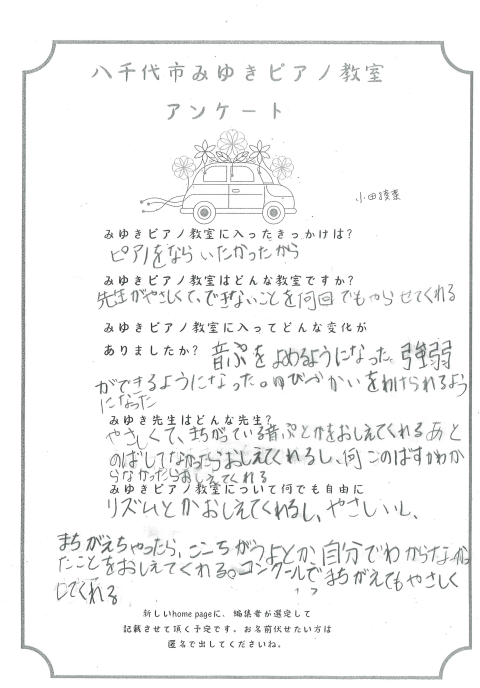 八千代市みゆきピアノ教室
アンケート
小田
みゆきピアノ教室に入ったきっかけは?
ピアノをならいたかったから
みゆきピアノ教室はどんな教室ですか?
先生がやさしくて、できないことを何回でもやらせてくれる
みゆきピアノ教室に入ってどんな変化が
ありましたか? 音ぷをよめるようになった。強弱
ができるようになった。ゆびづかいをわけられるよう
になった
みゆき先生はどんな先生?
やさしくて、まちがている音ぷとかをおしえてくれるあと
のばしてなかったらおしえてくれるし、何こ のばすかわか
らなかったらおしえてくれる
みゆきピアノ教室について何でも自由に
リズムとかおしえてくれるし、やさしいし、
まちがえちゃったら、ここちがうよとか自分でわからなかっ
たことをおしえてくれる。コンクールでまちがえてもやさしく
してくれる
新しいhome pageに、編集者が選定して
記載させて頂く予定です。お名前伏せたい方は
匿名で出してくださいね。